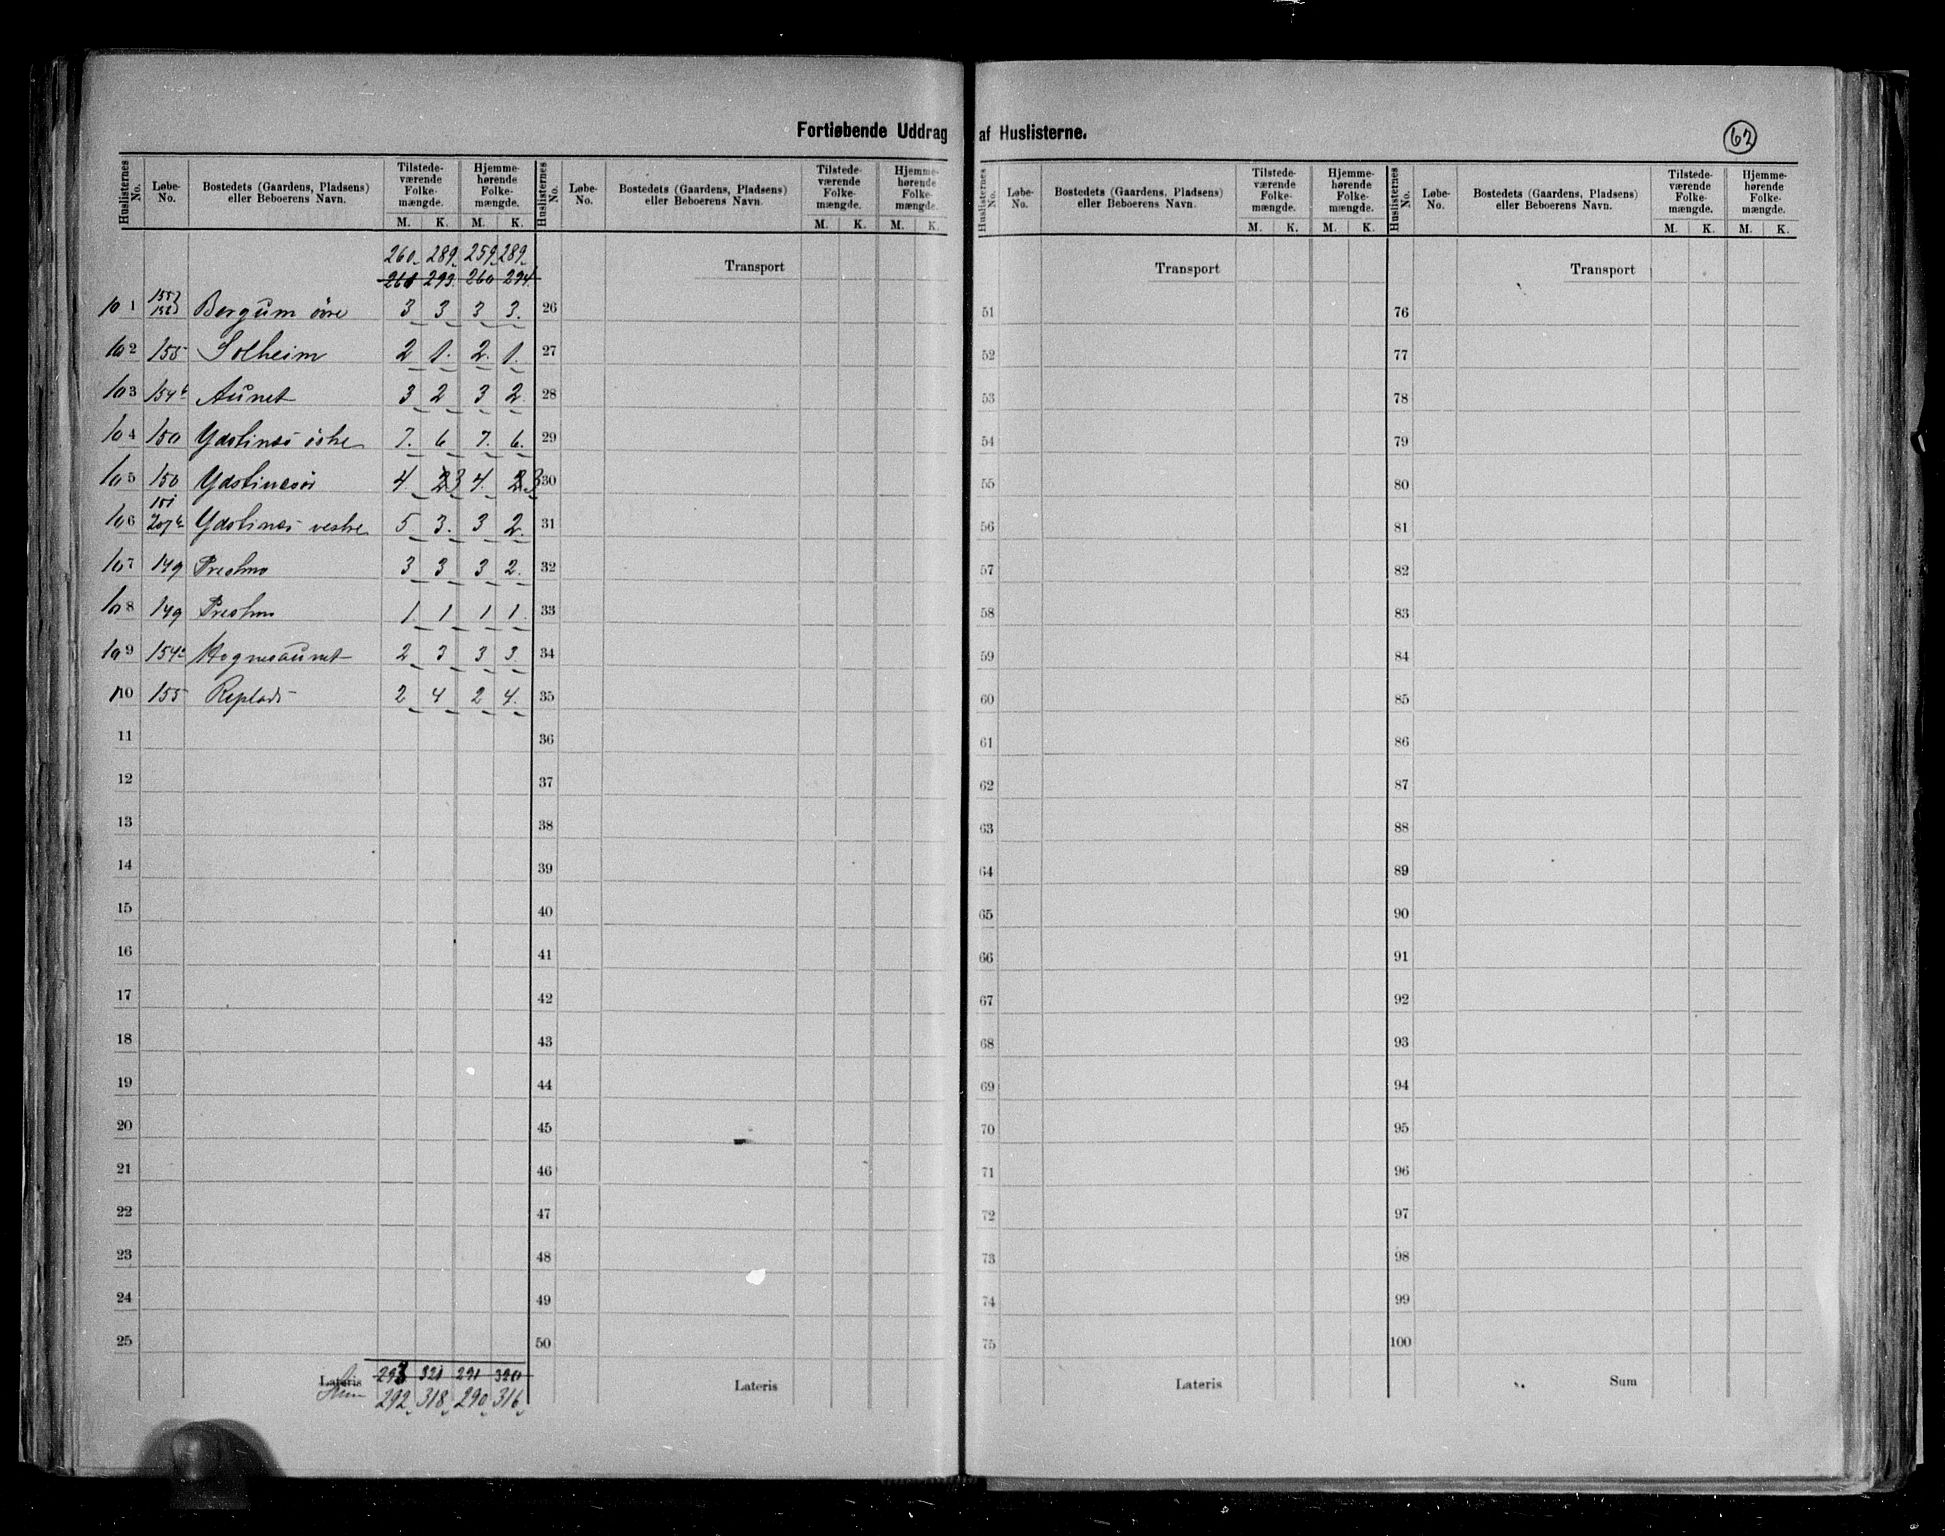 Fortløbende Uddrag af Huslisterne.
62
Huslisternes No. | Løbe-No. | Bostedets (Gaardens, Pladsens) eller Beboerens Navn. | Tilstede-værende Folke-mængde. M. K. | Hjemme-hørende Folke-mængde. M. K.
260 289 259 289
261 293 260 294
101 Bergum øvre 3 3 3 3
102 155 Solheim 2 1 2 1
103 154b Aunet 3 2 3 2
104 150 Ydstines østre 7 6 7 6
105 150 Ydstinesør 4 3 4 3
106 151 207b Ydstines vestre 5 3 3 2
107 149 Prestmo 3 3 3 2
108 149 Prestmo 1 1 1 1
109 154a Hognesaunet 2 3 3 3
110 155 Replads 2 4 2 4
11
12
13
14
15
16
17
18
19
20
21
22
23
24
25
Lateris 293 321 291 320
Sum 292 318 290 316
Huslisternes No. | Løbe-No. | Bostedets (Gaardens, Pladsens) eller Beboerens Navn. | Tilstede-værende Folke-mængde. M. K. | Hjemme-hørende Folke-mængde. M. K.
Transport
26
27
28
29
30
31
32
33
34
35
36
37
38
39
40
41
42
43
44
45
46
47
48
49
50
Lateris
Huslisternes No. | Løbe-No. | Bostedets (Gaardens, Pladsens) eller Beboerens Navn. | Tilstede-værende Folke-mængde. M. K. | Hjemme-hørende Folke-mængde. M. K.
Transport
51
52
53
54
55
56
57
58
59
60
61
62
63
64
65
66
67
68
69
70
71
72
73
74
75
Lateris
Huslisternes No. | Løbe-No. | Bostedets (Gaardens, Pladsens) eller Beboerens Navn. | Tilstede-værende Folke-mængde. M. K. | Hjemme-hørende Folke-mængde. M. K.
Transport
76
77
78
79
80
81
82
83
84
85
86
87
88
89
90
91
92
93
94
95
96
97
98
99
100
Sum